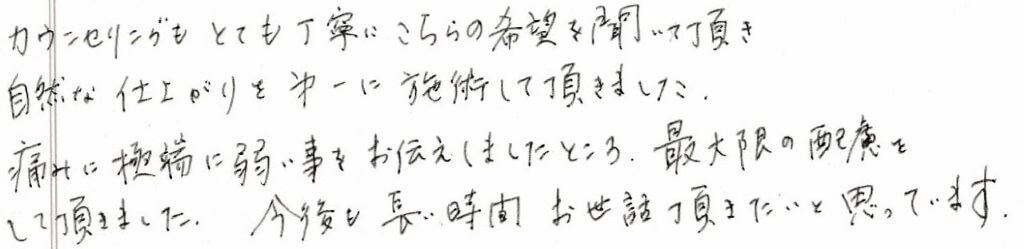 カウンセリングもとても丁寧にこちらの希望を聞いて頂き
自然な仕上がりを第一に施術して頂きました.
痛みに極端に弱い事をお伝えしましたところ.最大限の配慮を
して頂きました.今後も長い時間お世話頂きたいと思っています.